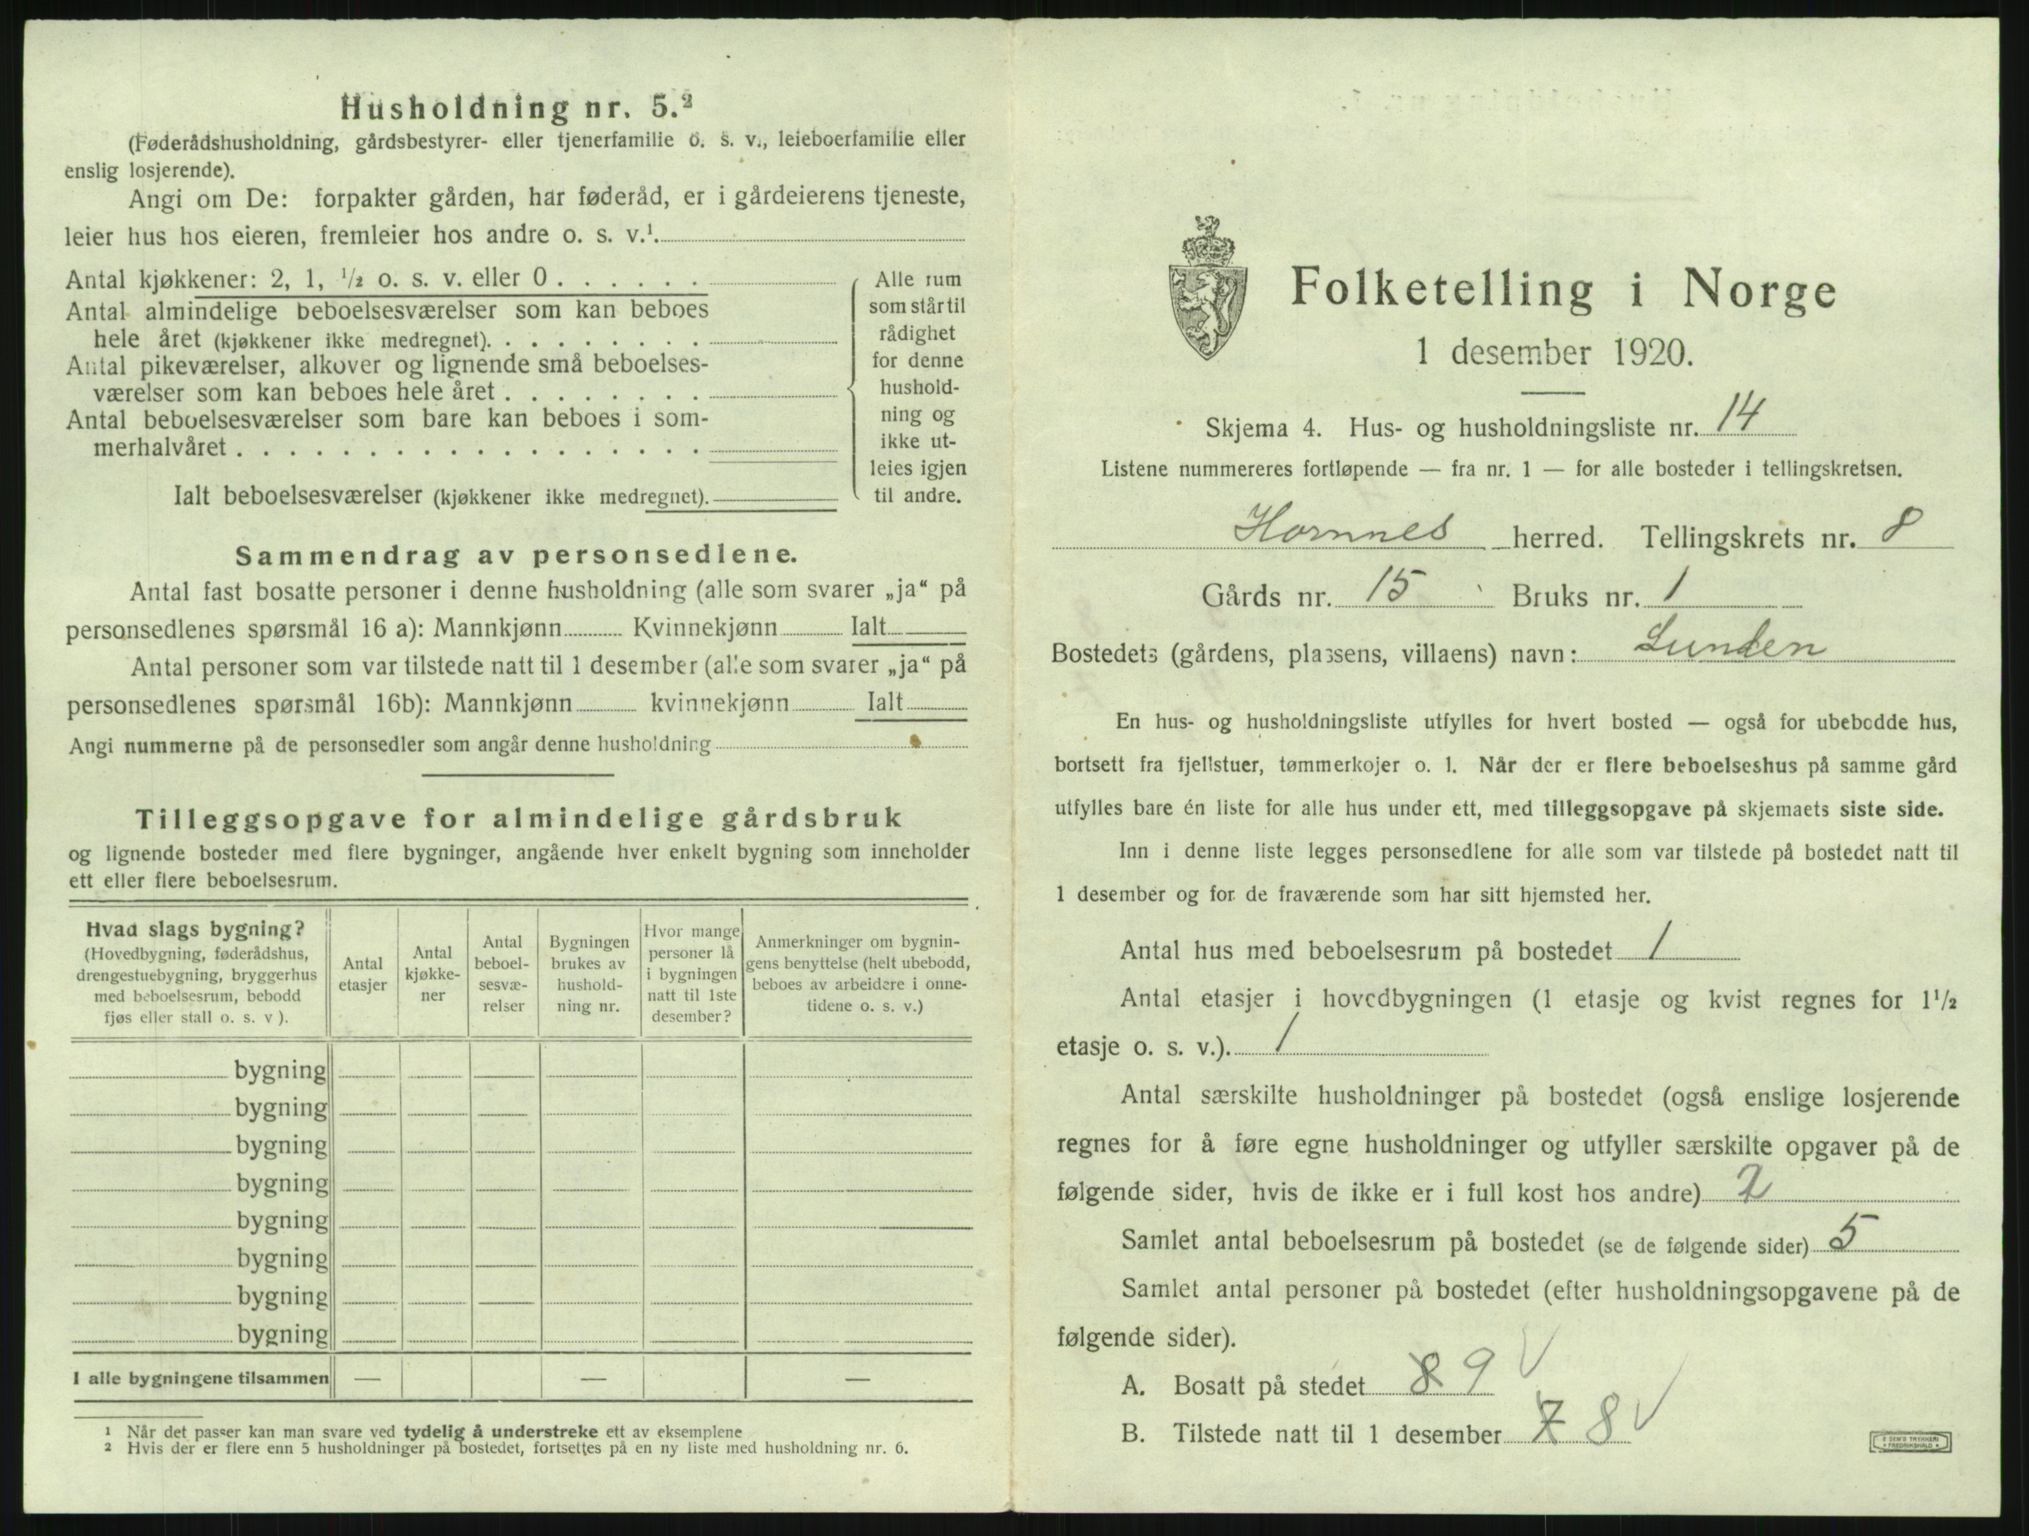 Husholdning nr. 5.²
(Føderådshusholdning, gårdsbestyrer- eller tjenerfamilie o. s. v., leieboerfamilie eller
enslig losjerende).
Angi om De: forpakter gården, har føderåd, er i gårdeierens tjeneste,
leier hus hos eieren, fremleier hos andre o. s. v.¹
Antal kjøkkener: 2, 1, ½ o. s. v. eller 0 . . . . . .
Antal almindelige beboelsesværelser som kan beboes
hele året (kjøkkener ikke medregnet). . . . . . . . .
Antal pikeværelser, alkover og lignende små beboelses-
værelser som kan beboes hele året . . . . . . . .
Antal beboelsesværelser som bare kan beboes i som-
merhalvåret . . . . . . . . . . . . . . . . . .
Ialt beboelsesværelser (kjøkkener ikke medregnet).
Alle rum
som står til
rådighet
for denne
hushold-
ning og
ikke ut-
leies igjen
til andre.
Sammendrag av personsedlene.
Antal fast bosatte personer i denne husholdning (alle som svarer „ja“ på
personsedlenes spørsmål 16 a): Mannkjønn Kvinnekjønn Ialt
Antal personer som var tilstede natt til 1 desember (alle som svarer „ja“ på
personsedlenes spørsmål 16b): Mannkjønn kvinnekjønn Ialt
Angi nummerne på de personsedler som angår denne husholdning
Tilleggsopgave for almindelige gårdsbruk
og lignende bosteder med flere bygninger, angående hver enkelt bygning som inneholder
ett eller flere beboelsesrum.
Hvad slags bygning?
(Hovedbygning, føderådshus,
drengestuebygning, bryggerhus
med beboelsesrum, bebodd
fjøs eller stall o. s. v ).
Antal
etasjer
Antal
kjøkke-
ner
Antal
beboel-
sesvæ-
relser
Bygningen
brukes av
hushold-
ning nr.
Hvor mange
personer lå
i bygningen
natt til 1ste
desember?
Anmerkninger om bygnin-
gens benyttelse (helt ubebodd,
beboes av arbeidere i onne-
tidene o. s. v.)
bygning
bygning
bygning
bygning
bygning
bygning
bygning
bygning
I alle bygningene tilsammen — — —
¹ Når det passer kan man svare ved tydelig å understreke ett av eksemplene
² Hvis der er flere enn 5 husholdninger på bostedet, fortsettes på en ny liste med husholdning nr. 6.
Folketelling i Norge
1 desember 1920.
Skjema 4. Hus- og husholdningsliste nr. 14
Listene nummereres fortløpende — fra nr. 1 — for alle bosteder i tellingskretsen.
Hornnes herred. Tellingskrets nr. 8
Gårds nr. 15 Bruks nr. 1
Bostedets (gårdens, plassens, villaens) navn: Lunden
En hus- og husholdningsliste utfylles for hvert bosted — også for ubebodde hus,
bortsett fra fjellstuer, tømmerkojer o. l. Når der er flere beboelseshus på samme gård
utfylles bare én liste for alle hus under ett, med tilleggsopgave på skjemaets siste side.
Inn i denne liste legges personsedlene for alle som var tilstede på bostedet natt til
1 desember og for de fraværende som har sitt hjemsted her.
Antal hus med beboelsesrum på bostedet 1
Antal etasjer i hovedbygningen (1 etasje og kvist regnes for 1½
etasje o. s. v.). 1
Antal særskilte husholdninger på bostedet (også enslige losjerende
regnes for å føre egne husholdninger og utfyller særskilte opgaver på de
følgende sider, hvis de ikke er i full kost hos andre) 2
Samlet antal beboelsesrum på bostedet (se de følgende sider) 5
Samlet antal personer på bostedet (efter husholdningsopgavene på de
følgende sider).
A. Bosatt på stedet 8 9 √
B. Tilstede natt til 1 desember 7 8 √